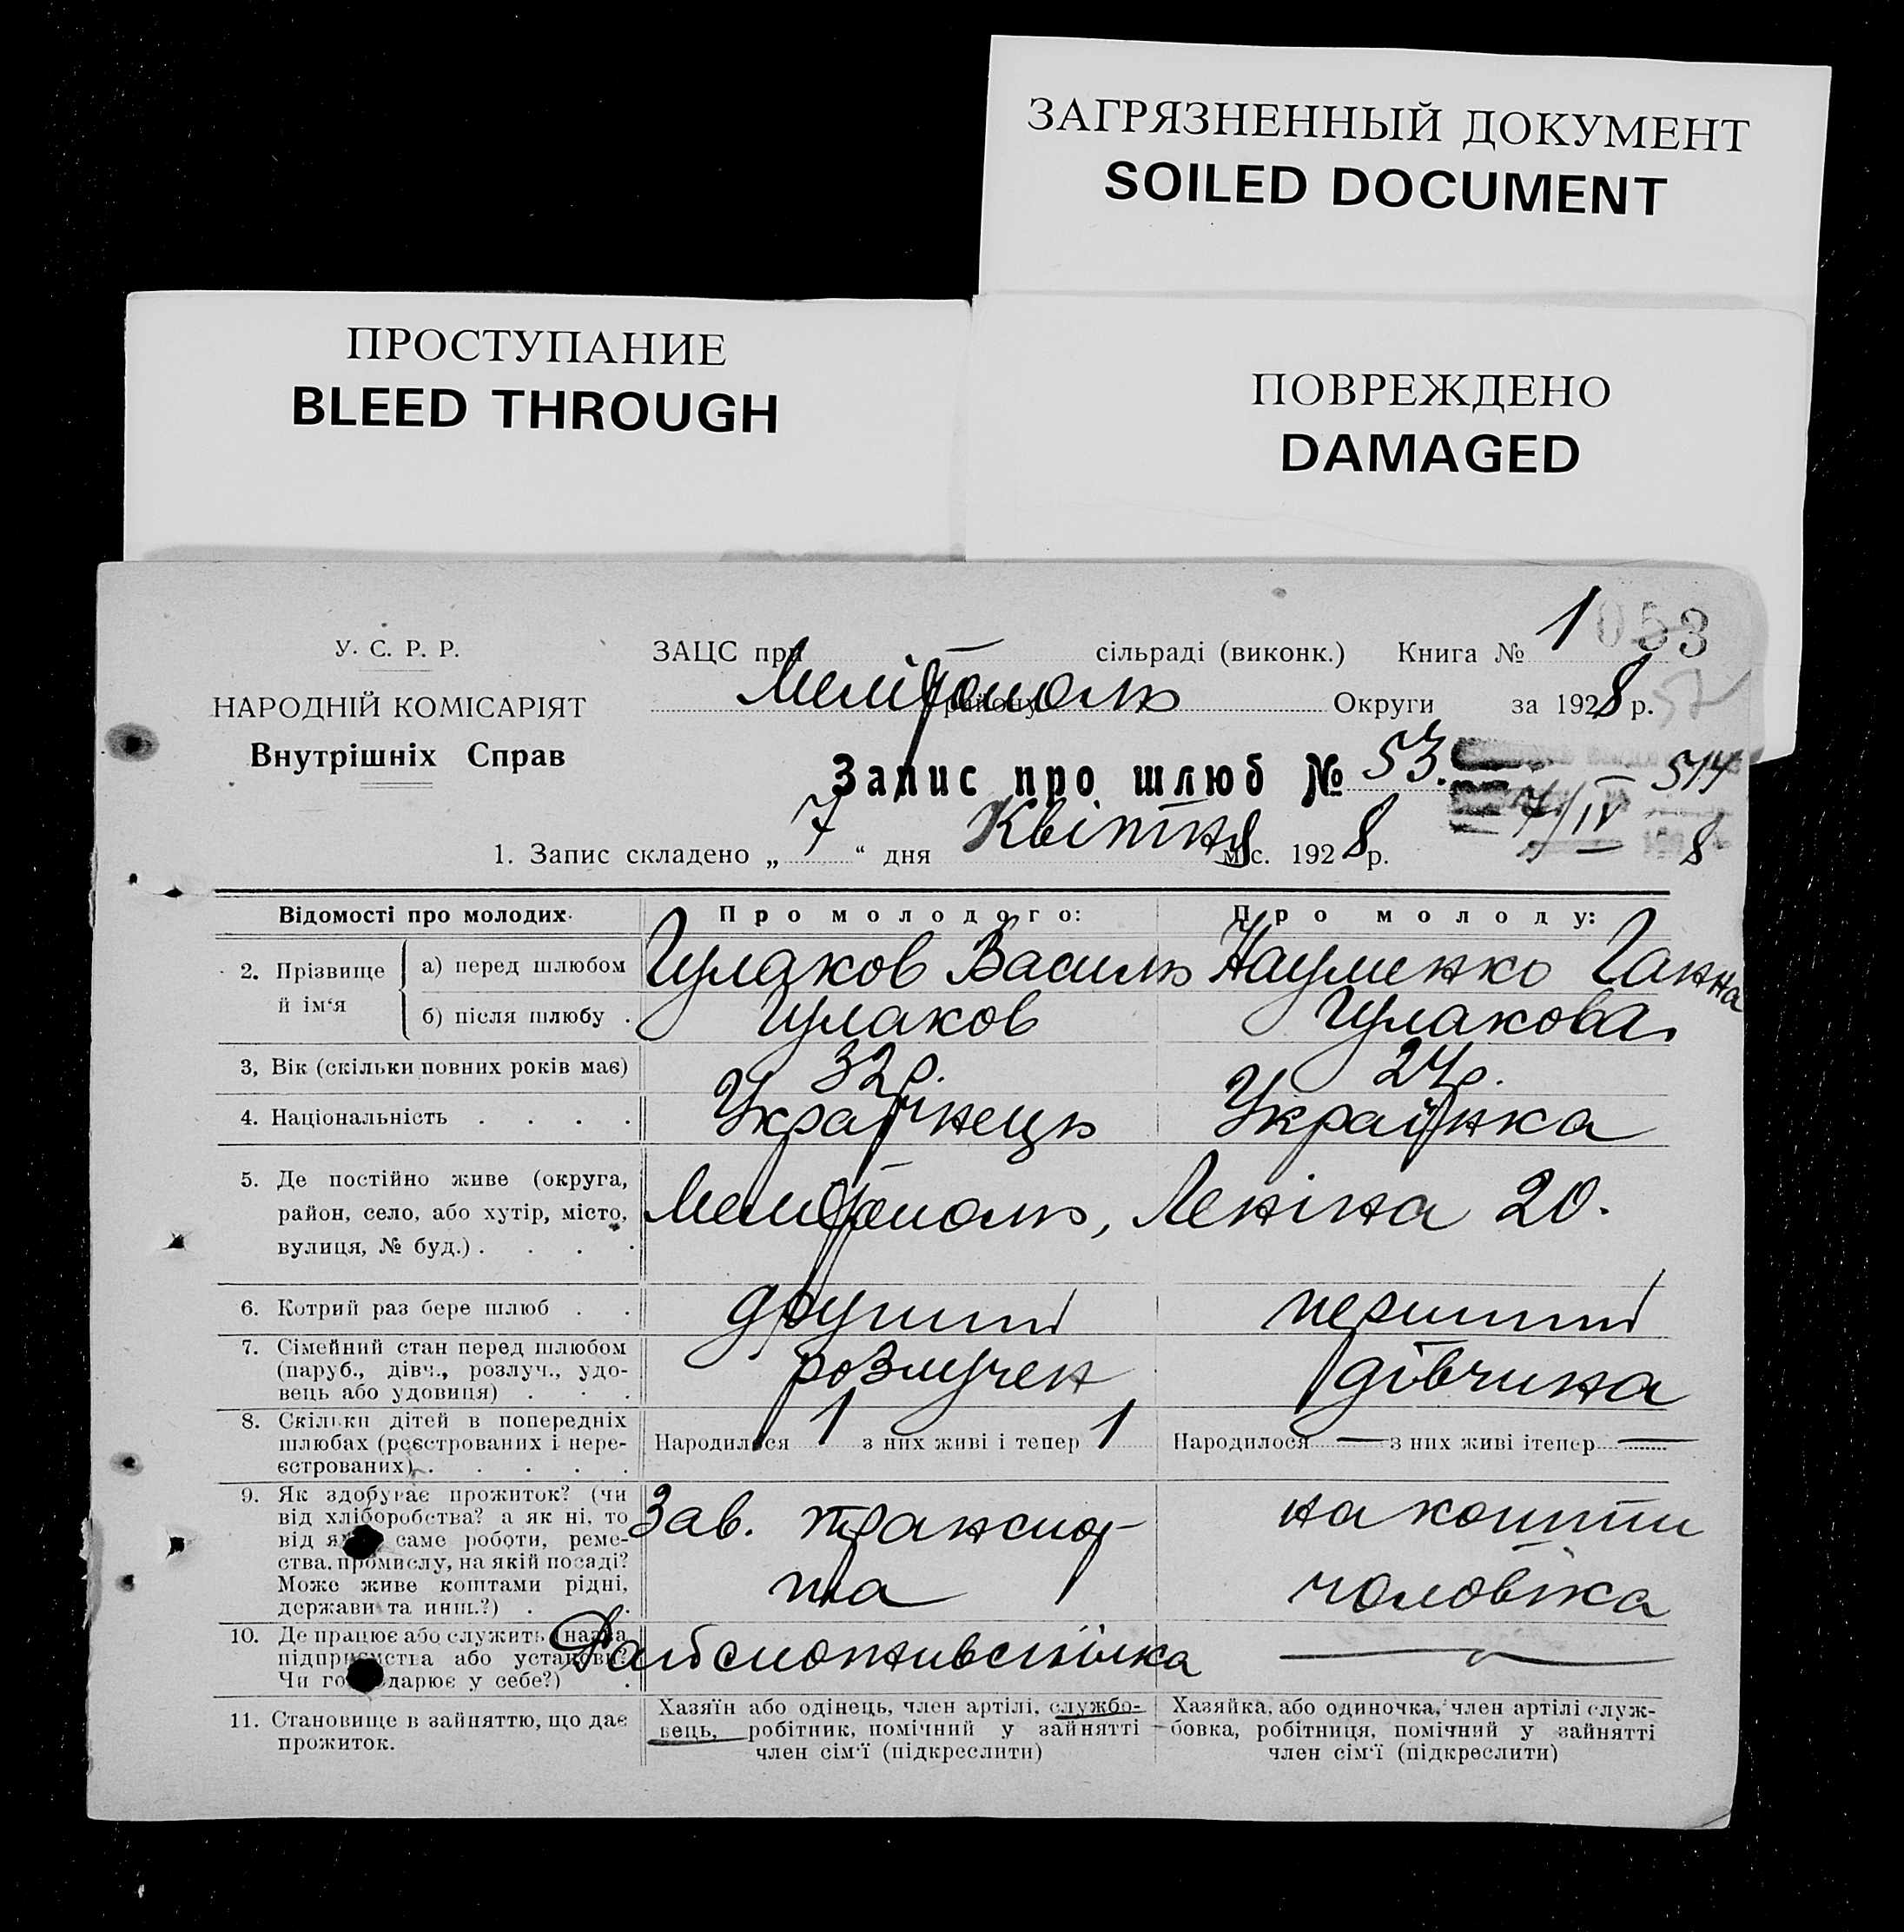 ЗАГРЯЗНЕННЫЙ ДОКУМЕНТ
SOILED DOCUMENT
ПРОСТУПАНИЕ
BLEED THROUGH
ПОВРЕЖДЕНО
DAMAGED
У. С. Р. Р.
НАРОДНІЙ КОМІСАРІЯТ
Внутрішніх Справ
ЗАЦС при сільраді (виконк.) Книга № 1 053
Мелітополь району Округи за 1928 р. 57
Запис про шлюб № 53.
514
7/IV 8
1. Запис складено „ 7 “ дня Квітня міс. 1928 р.
Відомості про молодих
Про молодого:
Про молоду:
2. Прізвище й ім‘я
а) перед шлюбом Гулаков Василь Науменко Ганна
б) після шлюбу . Гулаков Гулакова.
3, Вік (скільки повних років має) 32 р. 24 р.
4. Національність . . . . Українець Українка
5. Де постійно живе (округа,
район, село, або хутір, місто,
вулиця, № буд.) . . . .
Мелітополь, Леніна 20.
6. Котрий раз бере шлюб . . другий перший
7. Сімейний стан перед шлюбом
(паруб., дівч., розлуч., удо-
вець або удовиця) . . .
розлучен дівчина
8. Скільки дітей в попередніх
шлюбах (реєстрованих і нере-
єстрованих) . . . . .
Народилося 1 з них живі і тепер 1
Народилося — з них живі ітепер —
9. Як здобуває прожиток? (чи
від хліборобства? а як ні, то
від я саме роботи, реме-
ства, промислу, на якій посаді?
Може живе коштами рідні,
держави та инш.?) . .
Зав. транспор-
та
на кошти
чоловіка
10. Де працює або служить (назва
підприємства або установи?
Чи го дарює у себе?) .
Райспоживспілка —
11. Становище в зайняттю, що дає
прожиток.
Хазяїн або одінець, член артілі, службо-
вець, робітник, помічний у зайнятті
член сім‘ї (підкреслити)
Хазяйка, або одиночка, член артілі служ-
бовка, робітниця, помічний у зайнятті
член сім‘ї (підкреслити)